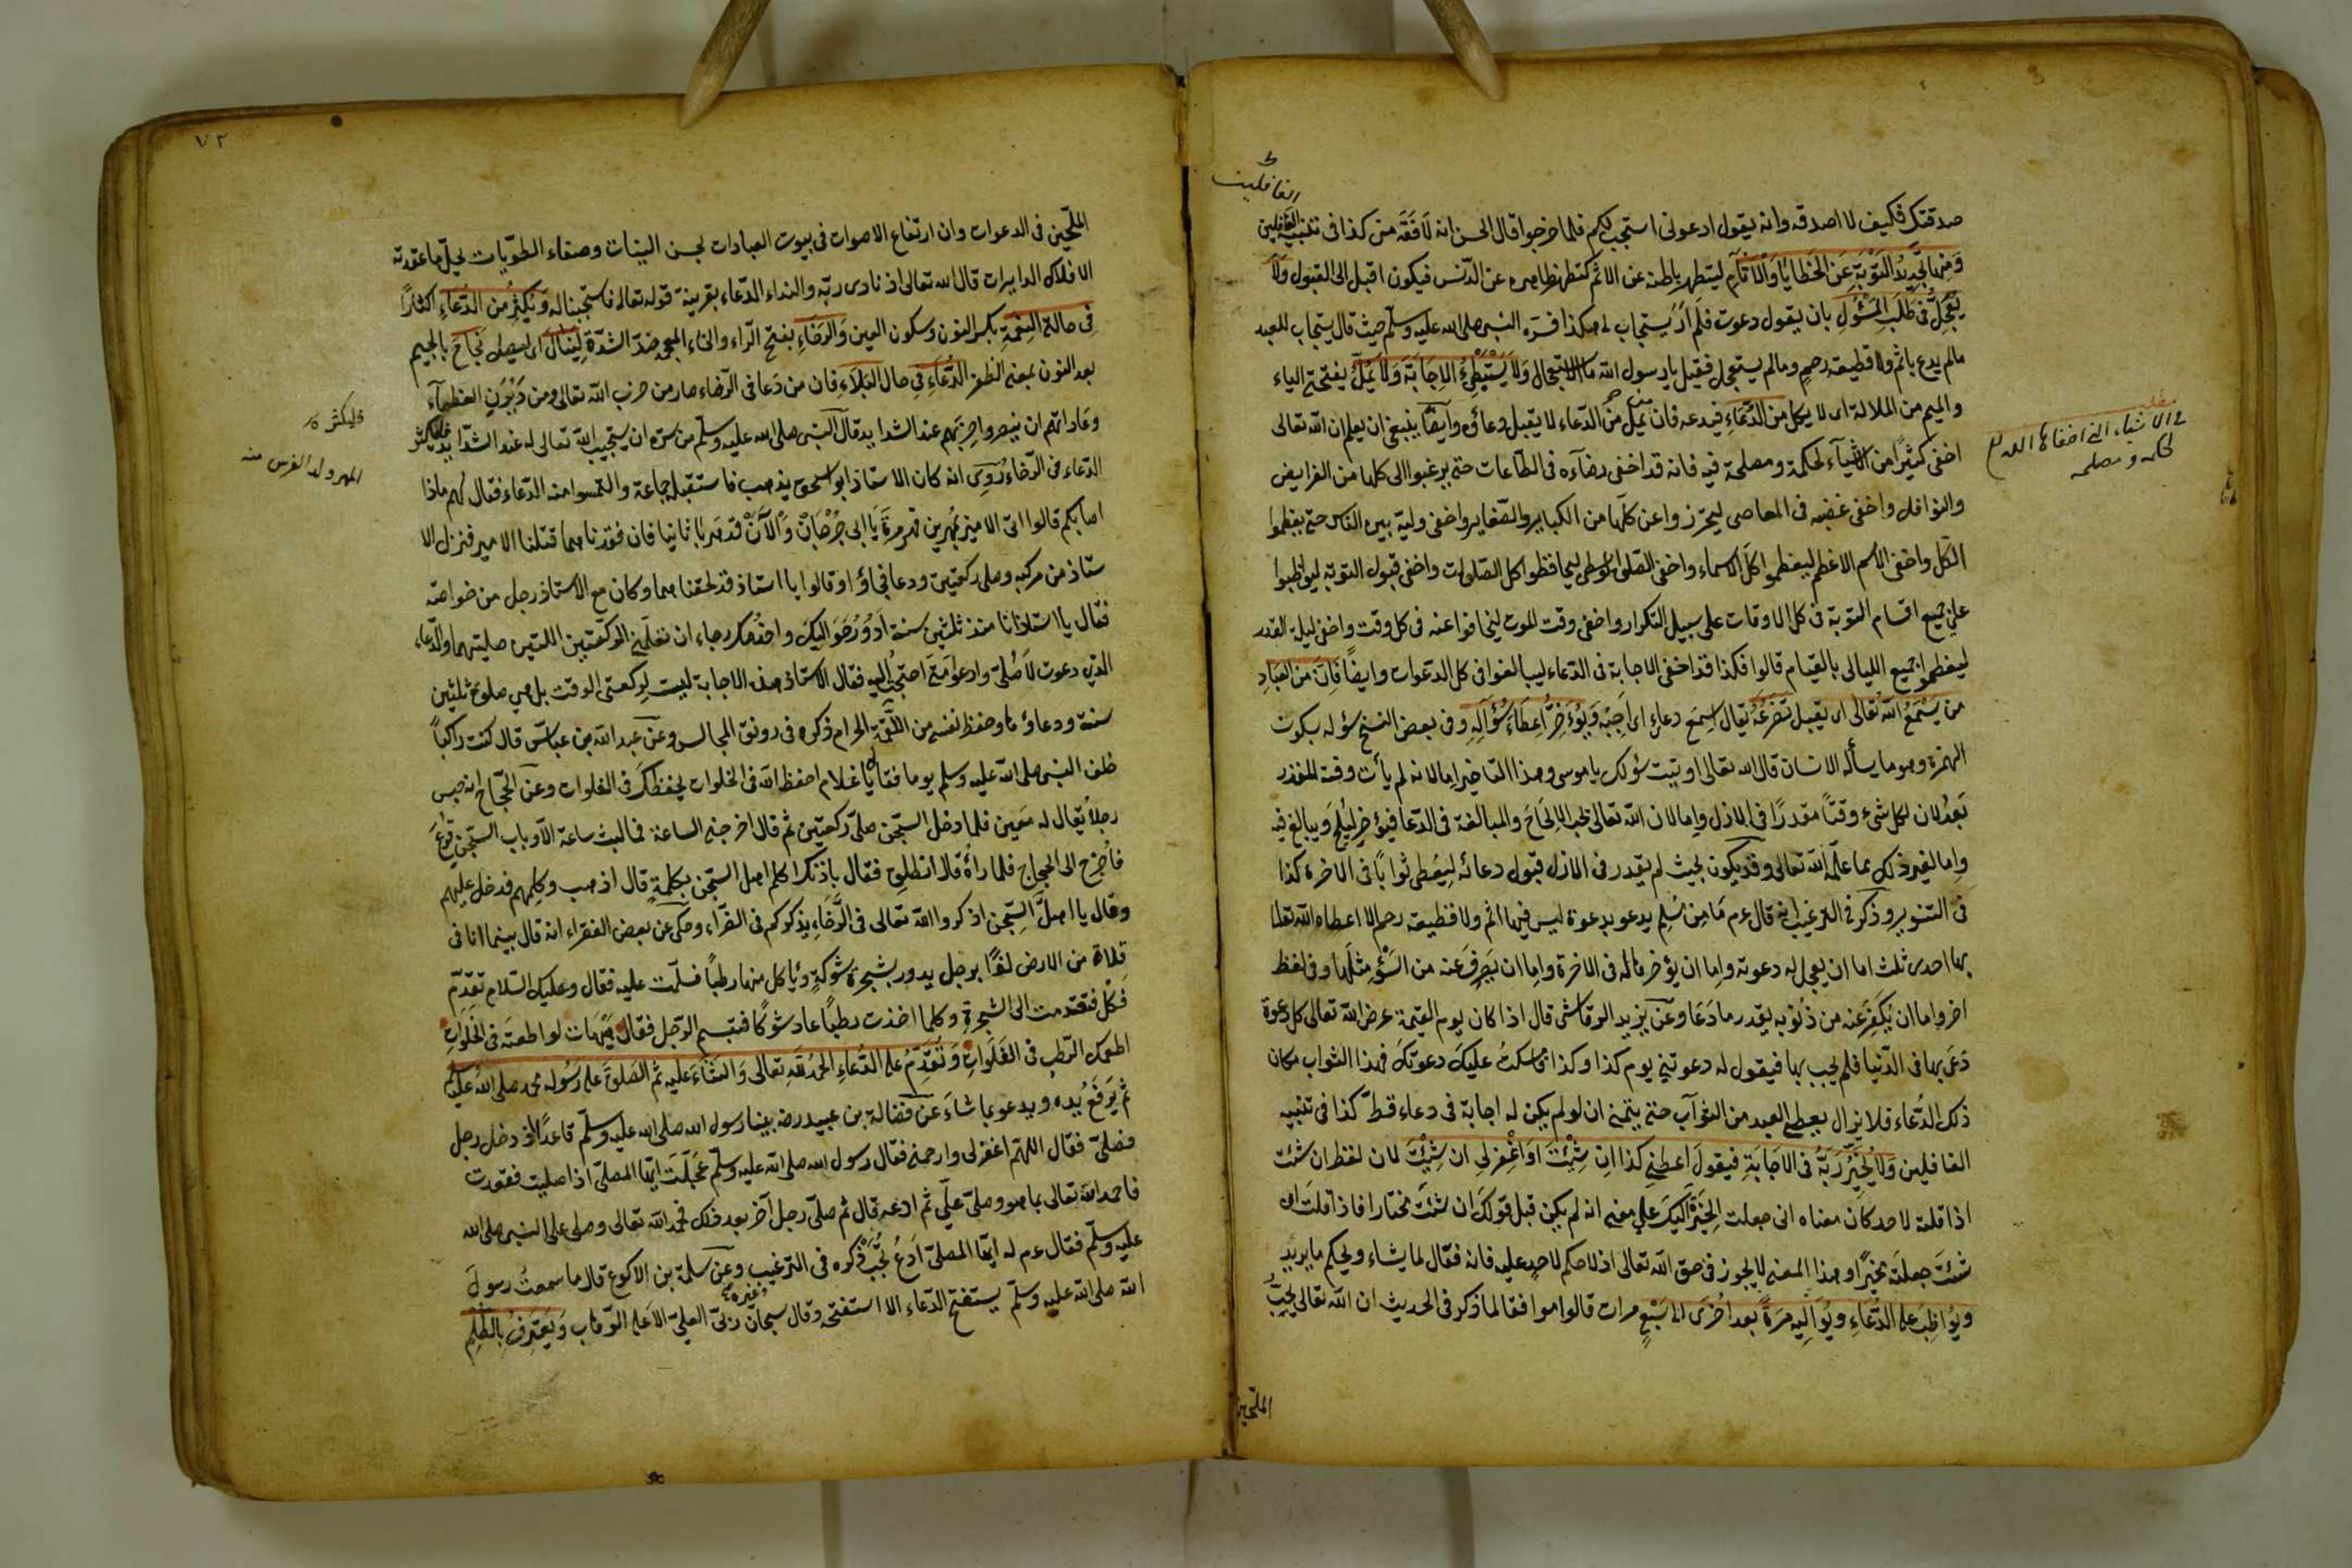 الغافلين
صدقتك فكيف لا اصدقه وانه يقول ادعونى استجب لكم فلما خرجوا قال الحسن انه لافقه من كذا فى تنبيه الغافلين
ومنها تجديد التوبة عن الخطايا والآثام ليتطهر باطنه عن الاثم كتطهر ظاهره عن الدنس فيكون اقبل الى القبول ولا
يعجل فى طلب المسئول بان يقول دعوت فلم ار يستجاب لى هكذا فسره النبى صلى الله عليه وسلم حيث قال يستجاب للعبد
مالم يدع باثم ولا قطيعة رحم ومالم يستعجل فقيل يا رسول الله ما الاستعجال ولا يستبطئ الاجابة ولا يمل بفتحة الياء
والميم من الملالة اى لا يكل من الدعاء فيدعه فان من يمل من الدعاء لا يقبل دعاؤه وايضا ينبغى ان يعلم ان الله تعالى
اخفى كثيرا من الاشياء لحكمة ومصلحة فيه فانه قد اخفى رضاءه فى الطاعات حتى يرغبوا الى كلها من الفرايض
والنوافل واخفى غضبه فى المعاصى ليحترزوا عن كلها من الكباير والصغاير واخفى وليه بين الناس حتى يعظموا
الكل واخفى الاسم الاعظم ليعظموا كل الاسماء واخفى الصلوة الوسطى ليحافظوا كل الصلوات واخفى قبول التوبة ليواظبوا
على جميع اقسام التوبة فى كل الاوقات على سبيل التكرار واخفى وقت الموت ليخافوا عنه فى كل وقت واخفى ليلة القدر
ليعظموا جميع الليالى بالقيام قالوا فكذا قد اخفى الاجابة فى الدعاء ليبالغوا فى كل الدعوات وايضا فان من العباد
من يسمع الله تعالى اى يقبل تضرعه يقال اسمع دعاءى اى اجبه ويؤخر اعطاء سؤاله وفى بعض النسخ سؤله بسكون
الهمزة وهو ما يسأله الانسان قال الله تعالى اوتيت سؤلك يا موسى وهذا التاخير اما لانه لم يأت وقته المقدر
بعد لان لكل شىء وقتا مقدرا فى الازل واما لان الله تعالى يحب الالحاح والمبالغة فى الدعا فيؤخر ليلح ويبالغ فيه
واما لغير ذلك مما علمه الله تعالى وقد يكون بحيث لم يقدر فى الازل قبول دعائه ليعطى ثوابا فى الاخرة كذا
فى التنوير وذكر فى الترغيب انه قال عم ما من مسلم يدعو بدعوة ليس فيها اثم ولا قطيعة رحم الا اعطاه الله تعالى
بها احدى ثلث اما ان يعجل له دعوته واما ان يؤخرها له فى الاخرة واما ان يصرف عنه من السوء مثلها وفى لفظ
اخر واما ان يكفر عنه من ذنوبه بقدر ما دعا وعن يزيد الرقاشى قال اذا كان يوم القيمة عرض الله تعالى كل دعوة
دعى بها فى الدنيا فلم يجب بها فيقول له دعوتنى يوم كذا وكذا فامسكت عليك دعوتك فهذا الثواب مكان
ذلك الدعاء فلا يزال يعطى العبد من الثواب حتى يتمنى ان لو لم يكن له اجابة فى دعاء قط كذا فى تنبيه
الغافلين ولا يخير ربه فى الاجابة فيقول اعطنى كذا ان شئت او اغفر لى ان شئت لان لفظ ان شئت
اذا قلته لاحد كان معناه انى جعلت الخيرة اليك على معنى انه لم يكن قبل قولك ان شئت مختارا فاذا قلت ان
شئت جعلته مخيرا وهذا المعنى لا يجوز فى حق الله تعالى اذ لا حكم لاحد عليه فانه فعال لما يشاء ويحكم ما يريد
ويواظب على الدعاء ويواليه مرة بعد اخرى الى سبع مرات قالوا موافقا لما ذكر فى الحديث ان الله تعالى يحب
الملحين
مطلب
فى الاشياء التى اخفاها الله تع
لحكمه ومصلحه
٧٢
الملحين فى الدعوات وان ارتفاع الاصوات فى بيوت العبادات لحسن النيات وصفاء الطويات لحل ما عقدته
الافلاك الدايرات قال الله تعالى اذ نادى ربه والنداء الدعاء بقرينة قوله تعالى فاستجبنا له ويكثر من الدعاء اكثارا
فى حالة النعمة بكسر النون وسكون العين والرخاء بفتح الراء والخاء المعجمه ضد الشدة لينال اى ليصل نجاح بالجيم
بعد النون بمعنى الظفر الدعاء فى حال البلاء فان من دعا فى الرخاء صار من حزب الله تعالى ومن العظماء
وعاداتهم ان ينصروا حزبهم عند الشدايد قال النبى صلى الله عليه وسلم من سره ان يستجيب الله تعالى له عند الشدايد فليكثر
الدعاء فى الرخاء روى انه كان الاستاذ ابو اسحق يذهب فاستقبله جماعة والتمسوا منه الدعاء فقال لهم ماذا
اصابكم قالوا اتى الامير بمهرين وقد هربا ثانيا فان فقدناهما قتلنا الامير فنزل الا
ستاذ من مركبه وصلى ركعتين ودعا فجاؤا وقالوا يا استاذ قد لحقناهما وكان مع الاستاذ رجل من خواصه
فقال يا استاذ انا منذ ثلثين سنة اليك واخدمك رجاء ان تعلمنى الركعتين اللتين صليتهما والدعاء
الذى دعوت لاصلى وادعو متى احتجت اليه فقال الاستاذ هذه الاجابة ليست لركعتى الوقت بل هى صلوة ثلثين
سنة ودعاؤها وحفظ نفسى من اللقمة الحرام ذكره فى رونق المجالس وعن عبد الله بن عباس قال كنت راكبا
خلف النبى صلى الله عليه وسلم يوما فقال يا غلام احفظ الله فى الخلوات يحفظك فى الفلوات وعن الحجاج انه حبس
رجلا يقال له معين فلما دخل السجن صلى ركعتين ثم قال اخرجنى الساعة فما لبث ساعة الا وباب السجن قرع
فأخرج الى الحجاج فلما رآه قال انطلق فقال باذنك اكلم اهل السجن بكلمة قال اذهب وكلمهم فدخل عليهم
وقال يا اهل السجن اذكروا الله تعالى فى الرخاء يذكركم فى الضراء وحكى عن بعض الفقراء انه قال بينما انا فى
فلاة من الارض برجل يدور بشجرة شوكة ويأكل منها رطبا فسلمت عليه فقال وعليك السلام تقدم
فكل فتقدمت الى الشجرة وكلما اخذت رطبا عاد شوكا فتبسم الرجل فقال هيهات لو اطعته فى الخلوات
اطعمك الرطب فى الفلوات وتقدم على الدعاء الحمد لله تعالى والثناء عليه ثم الصلوة على رسوله محمد صلى الله عليه وسلم
ثم يرفع يده ويدعو بما شاء عن فضالة بن عبيد رضه بينا رسول الله صلى الله عليه وسلم قاعدا اذ دخل رجل
فصلى فقال اللهم اغفر لى وارحمنى فقال رسول الله صلى الله عليه وسلم عجلت ايها المصلى اذا صليت فقعدت
فاحمد الله تعالى بما هو وصلى على ثم ادعه قال ثم صلى رجل آخر بعد ذلك فحمد الله تعالى وصلى على النبى صلى الله
عليه وسلم فقال عم له ايها المصلى ادع تجب ذكره فى الترغيب وغيره وعن سلمة بن الاكوع قال ما سمعت رسول
الله صلى الله عليه وسلم يستفتح الدعاء الا استفتحه وقال سبحان ربى العلى الاعلى الوهاب ويعترف بالظلم
فليكثر
المهر ولد الفرس منه